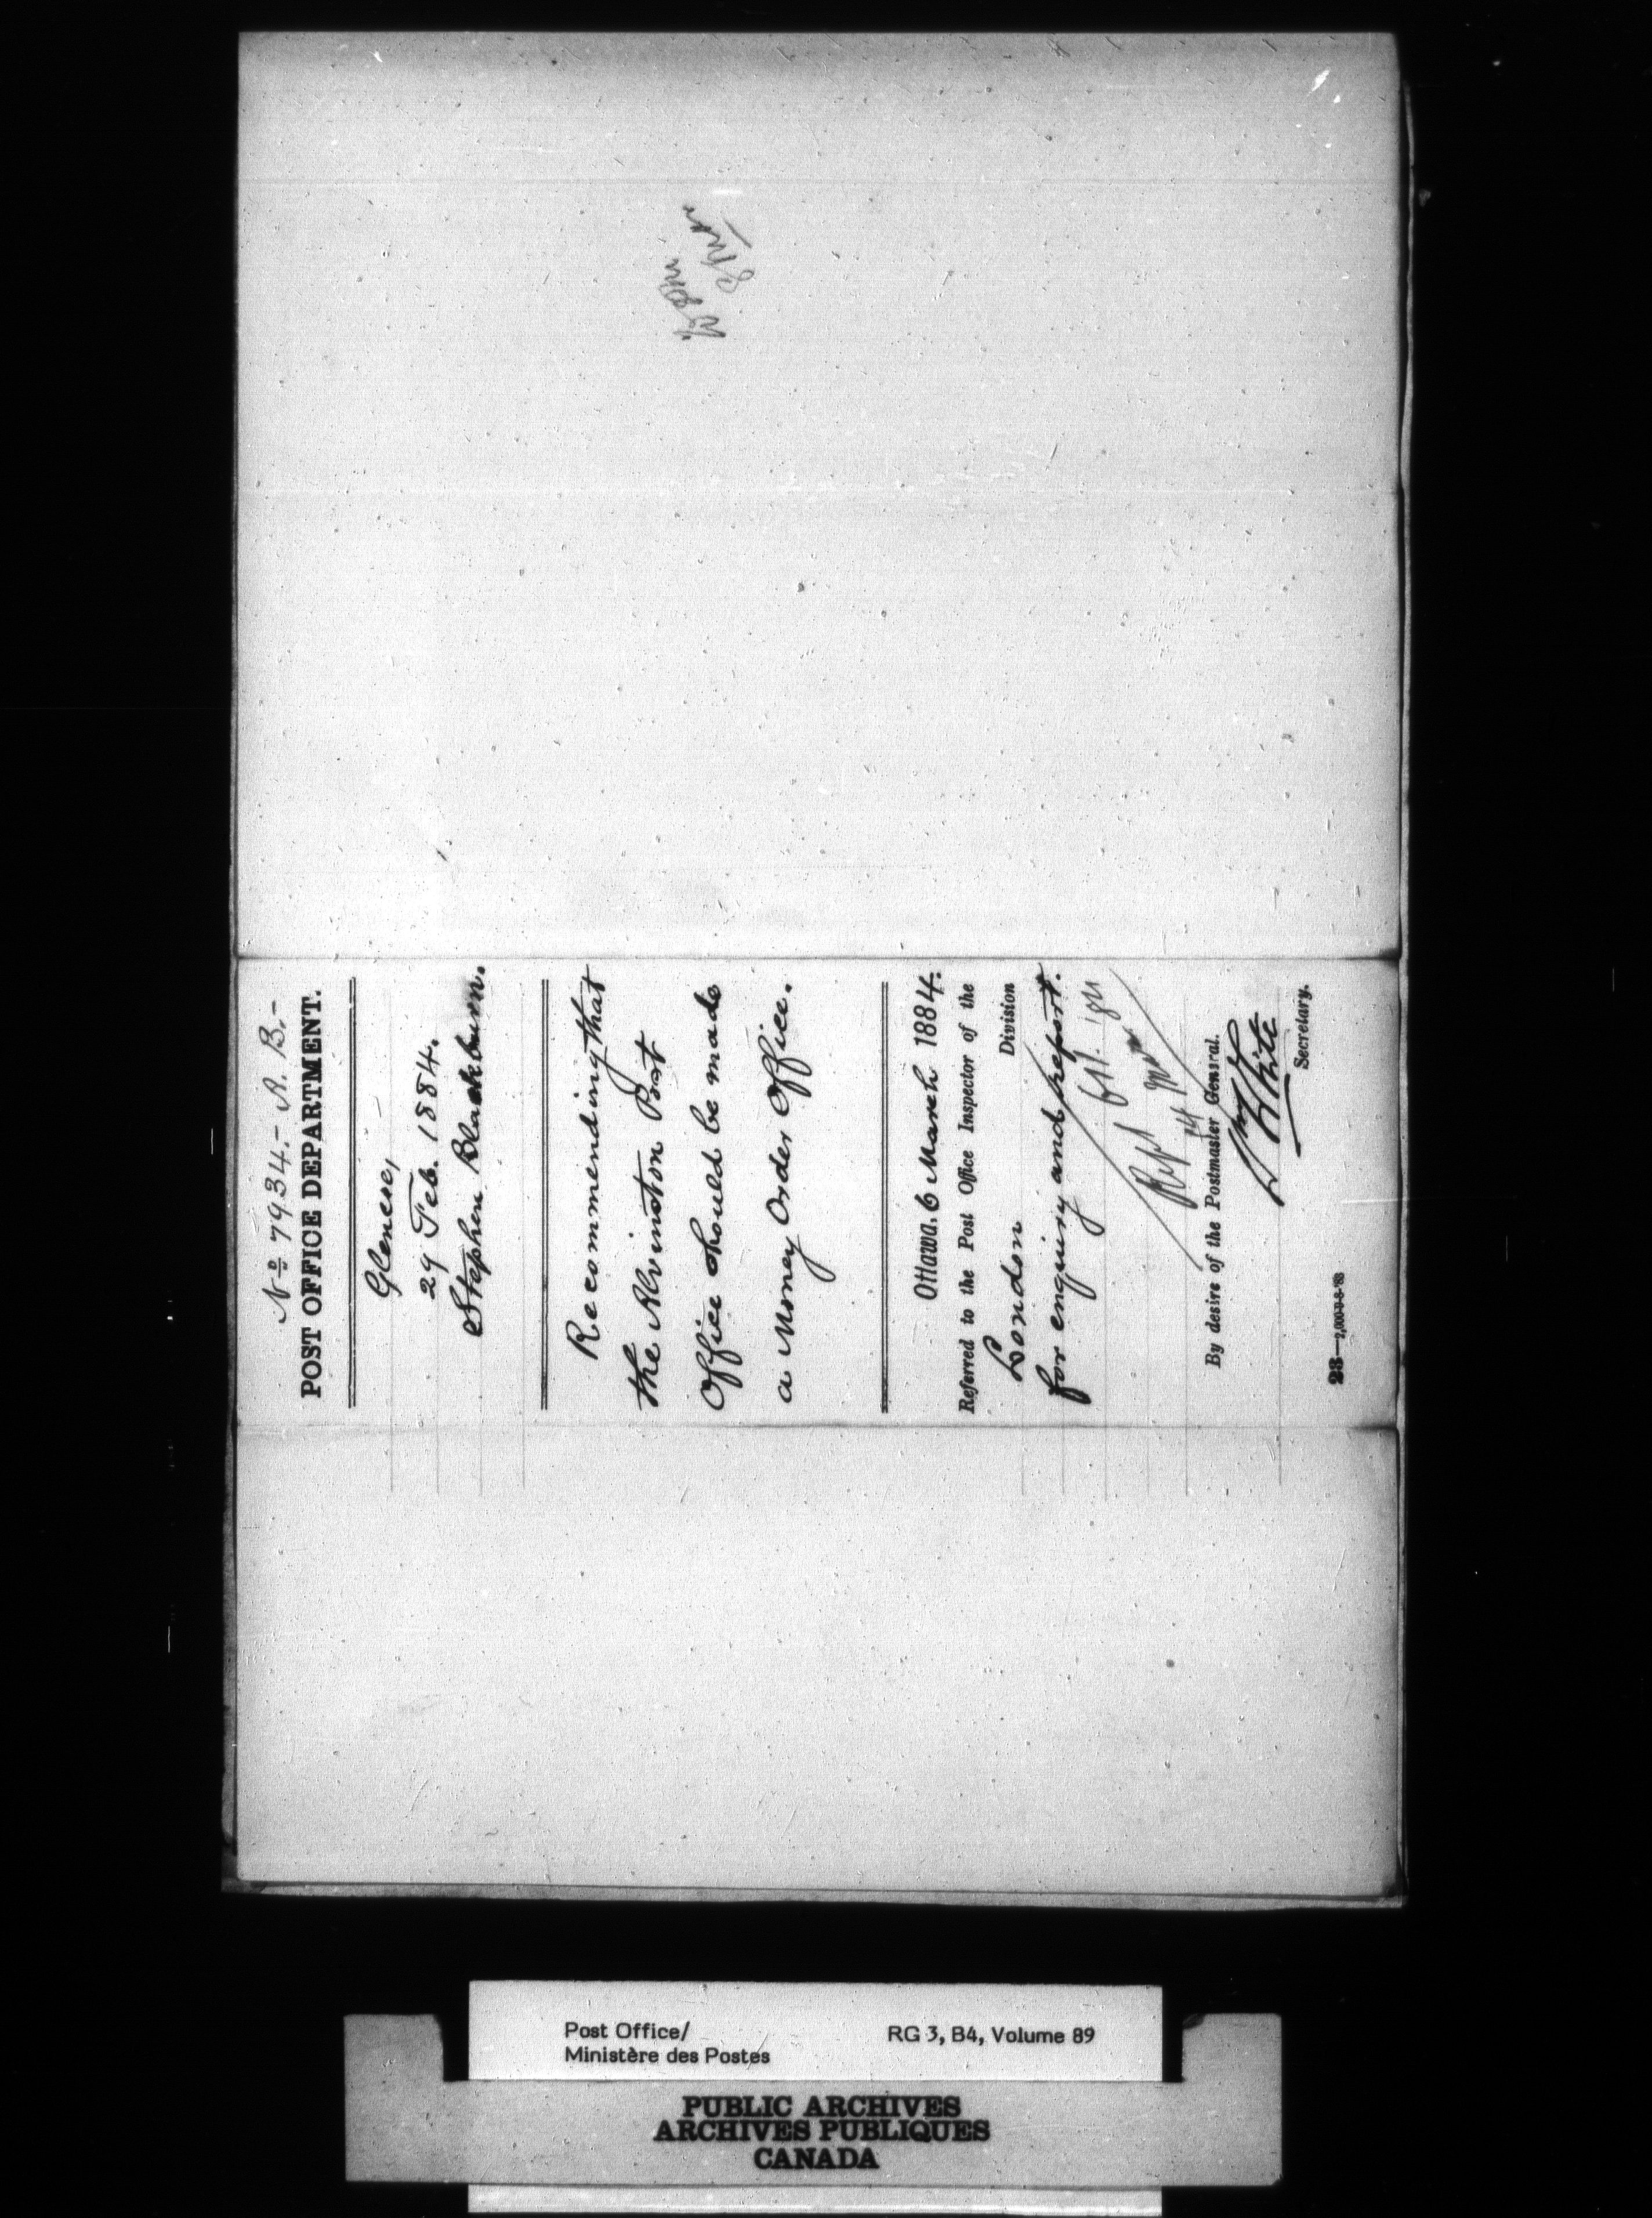 No 7934.- A. B.-
POST OFFICE DEPARTMENT.
Glencoe,
29 Feb. 1884.
Stephen Blackburn.
Recommending that
the Alvinston Post
Office should be made
a Money Order Office.
Ottawa, 6 March 1884.
Referred to the Post Office Inspector of the
London Division
for enquiry and report.
By desire of the Postmaster General.
White
Secretary.
Post Office/
Ministère des Postes
RG 3, B4, Volume 89
PUBLIC ARCHIVES
ARCHIVES PUBLIQUES
CANADA